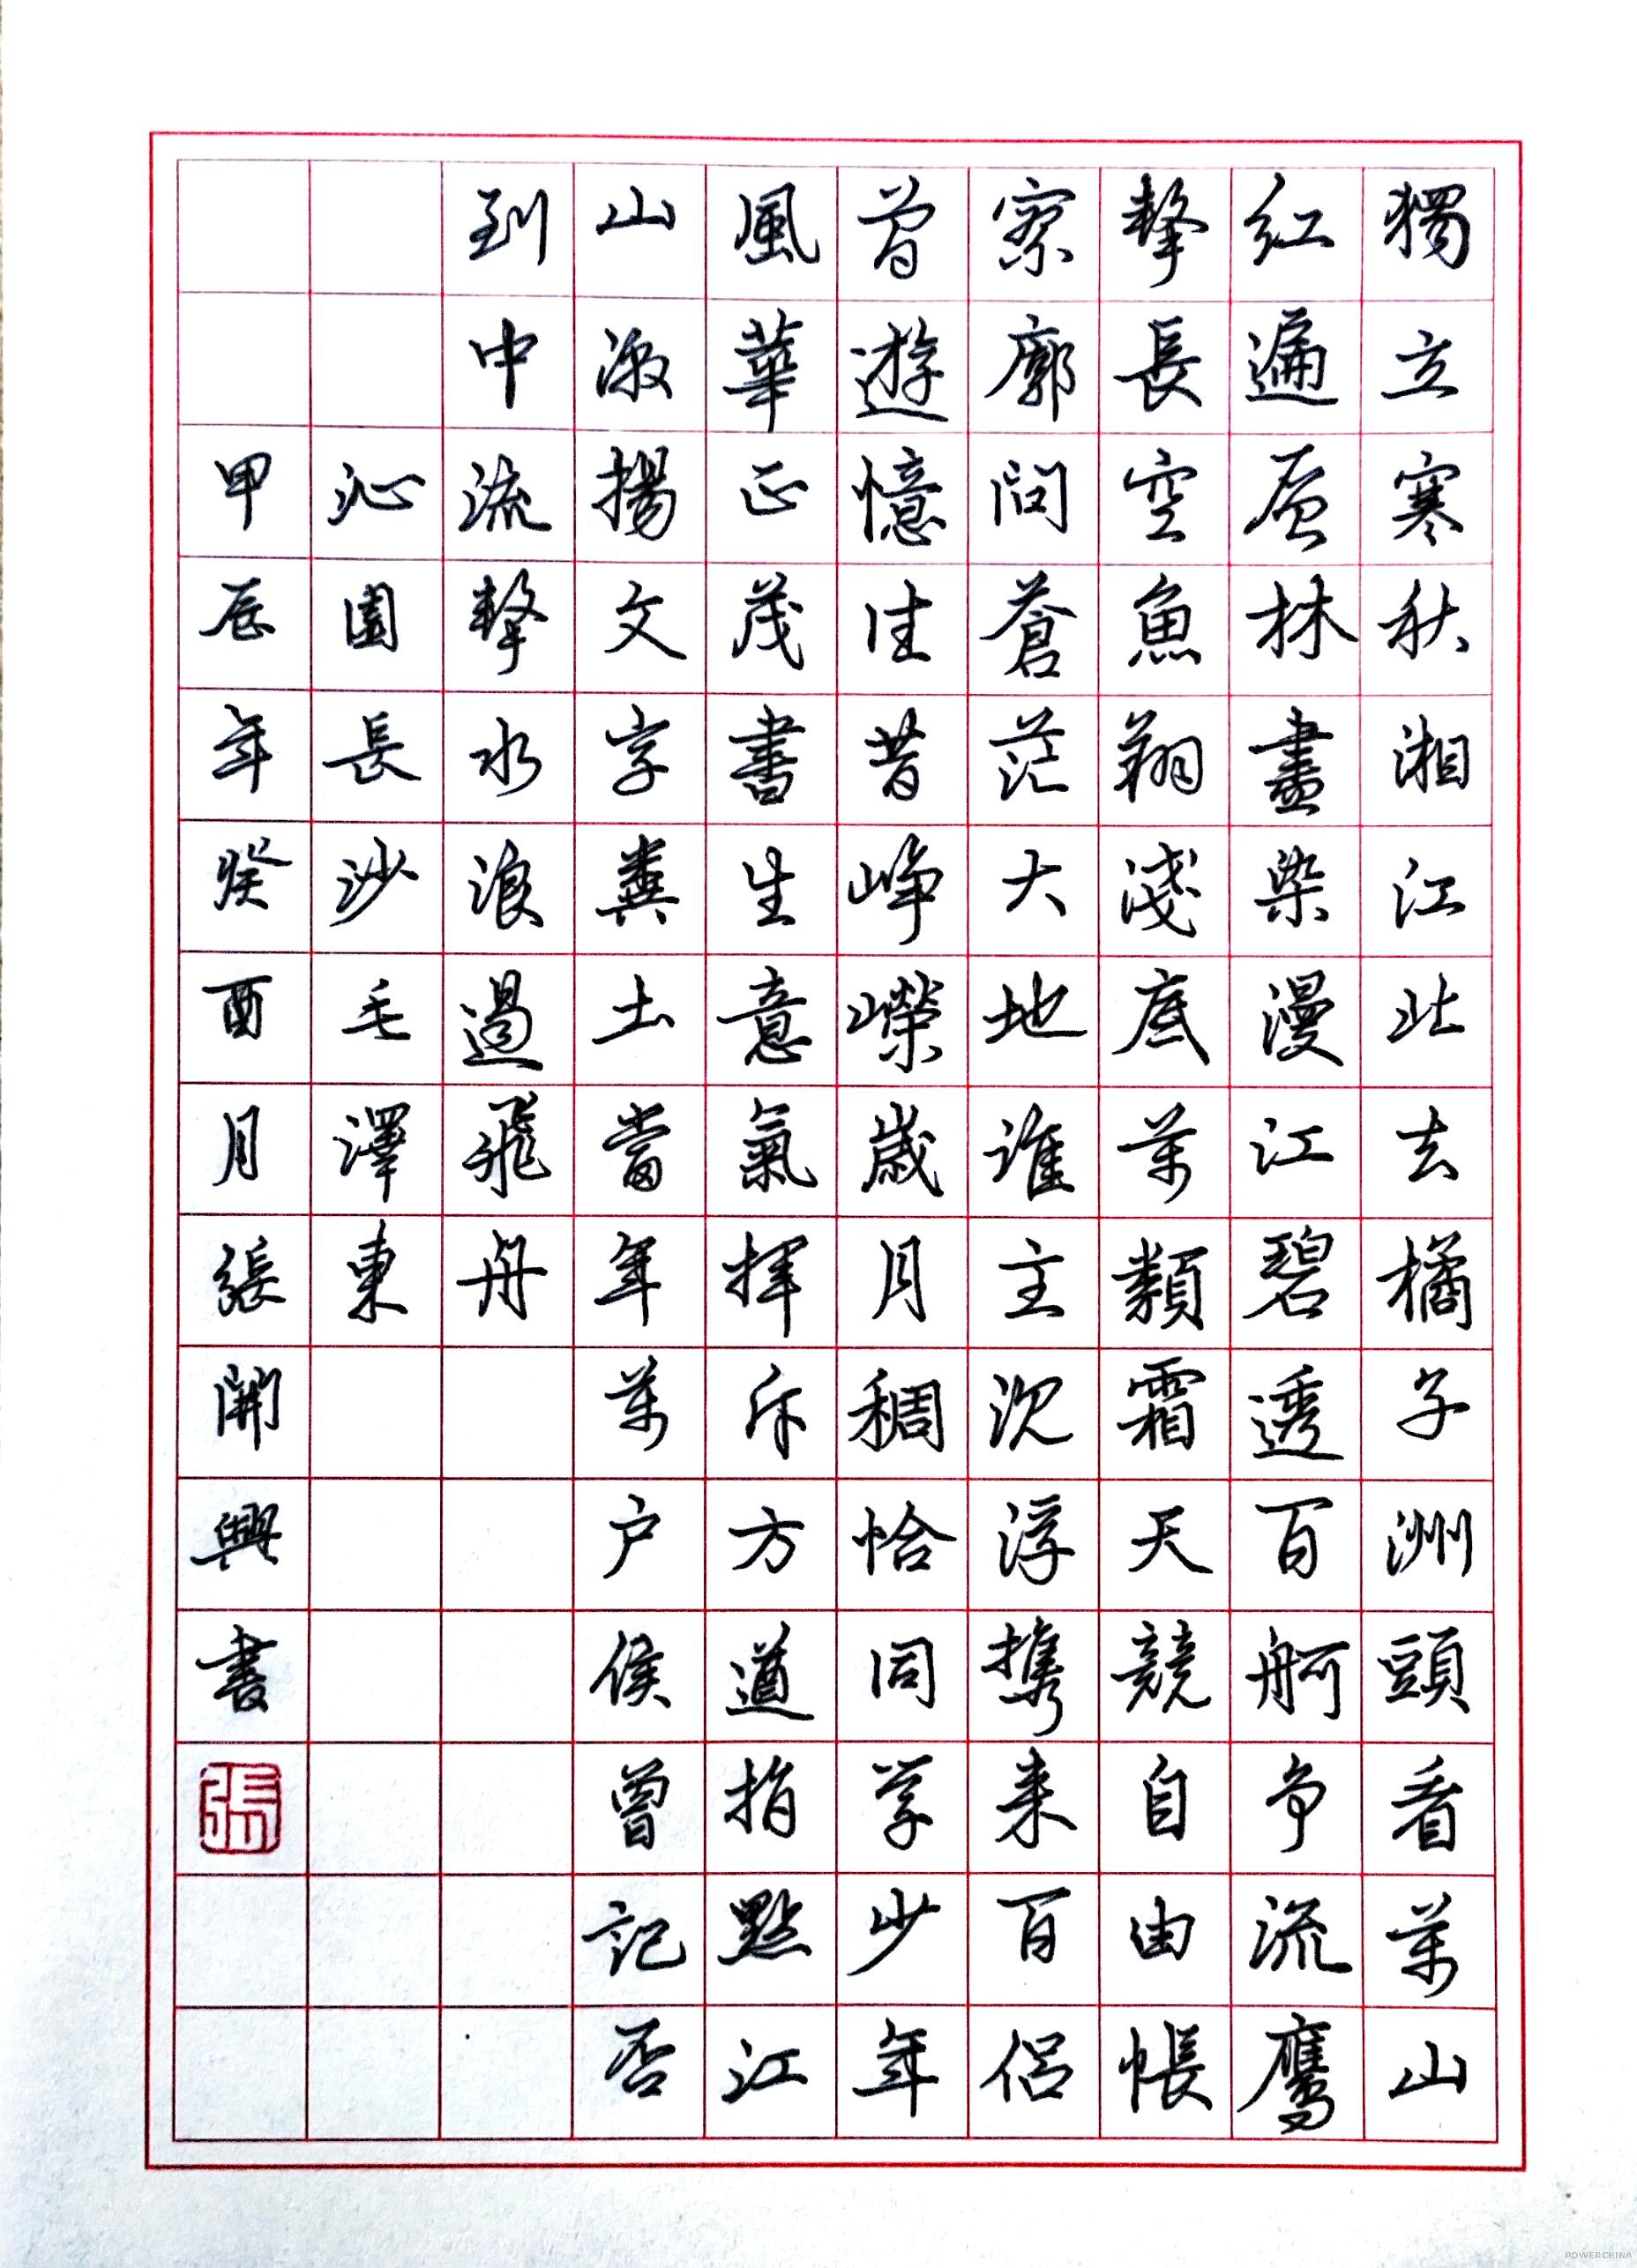 獨立寒秋湘江北去橘子洲頭看萬山
紅遍層林盡染漫江碧透百舸争流鷹
擊長空魚翔淺底萬類霜天競自由悵
寥廓問蒼茫大地誰主沉浮攜来百侶
曾遊憶往昔峥嶸歲月稠恰同学少年
風華正茂書生意氣揮斥方遒指點江
山激揚文字糞土當年萬户侯曾記否
到中流擊水浪遏飛舟
沁園長沙毛澤東
甲辰年癸酉月張開興書
張
POWERCHINA